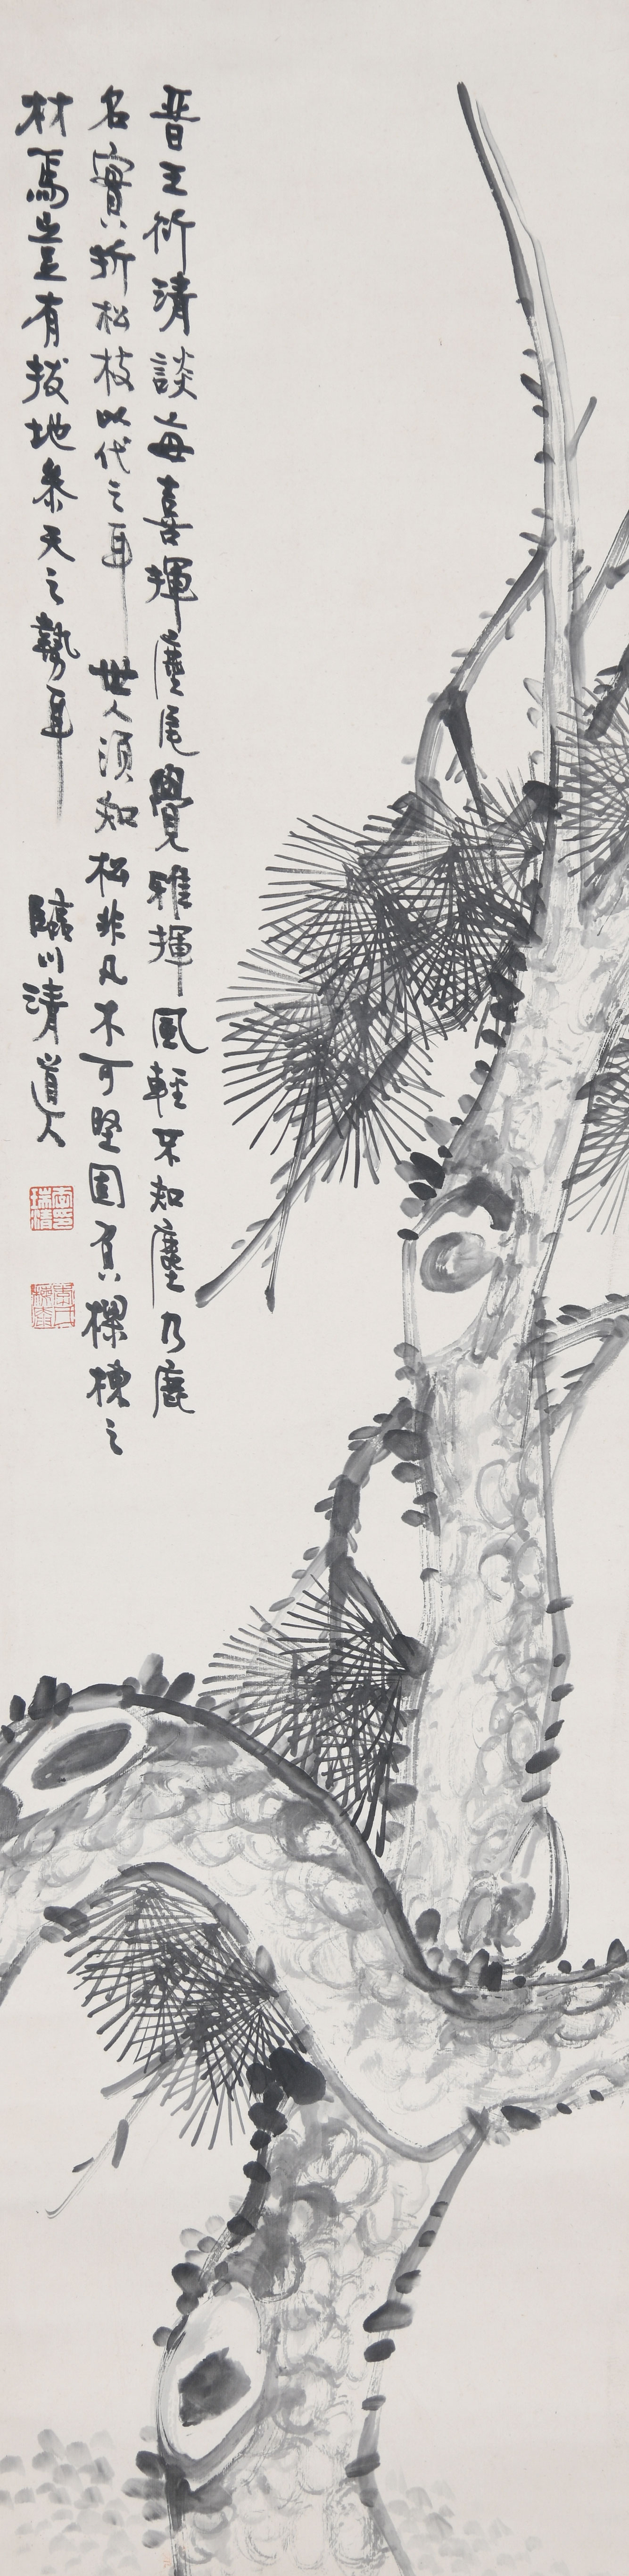 晉王衍清談每喜揮麈尾覺雅揮風輕不知麈乃鹿
名實折松枝以代之耳 世人須知松非凡木可堅固負樑棟之
材焉豈有拔地參天之勢耳
臨川清道人